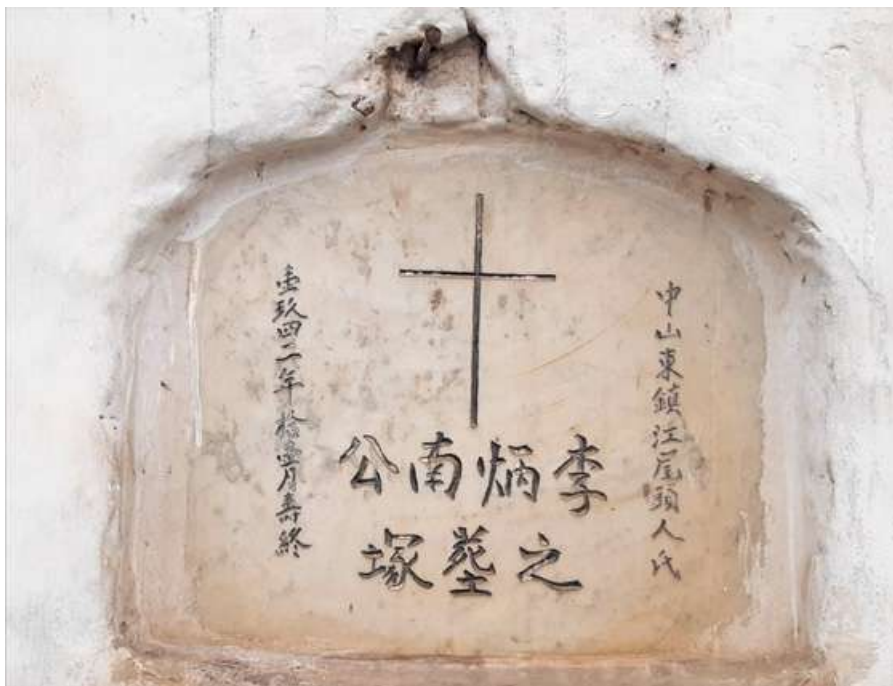 中山東鎮江尾頭人氏
李炳南公
之墓塚
壹玖四二年拾壹月壽終